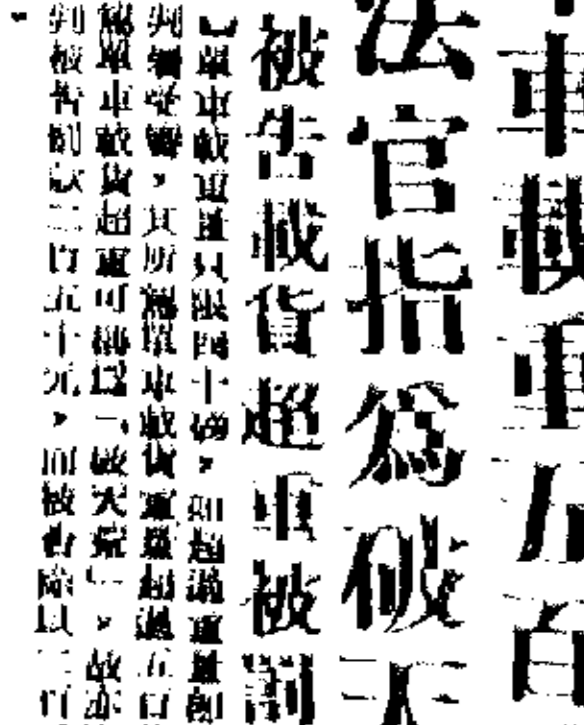 車載重五百
法官指為破天
被告載貨超重被罰
單車載重量只限四十磅，如超過重量
判編受審，其所騎單車載貨重量超過五百
單車載貨超重可稱為「破天荒」，故亦
判被告罰款二百五十元，而被告除以二百